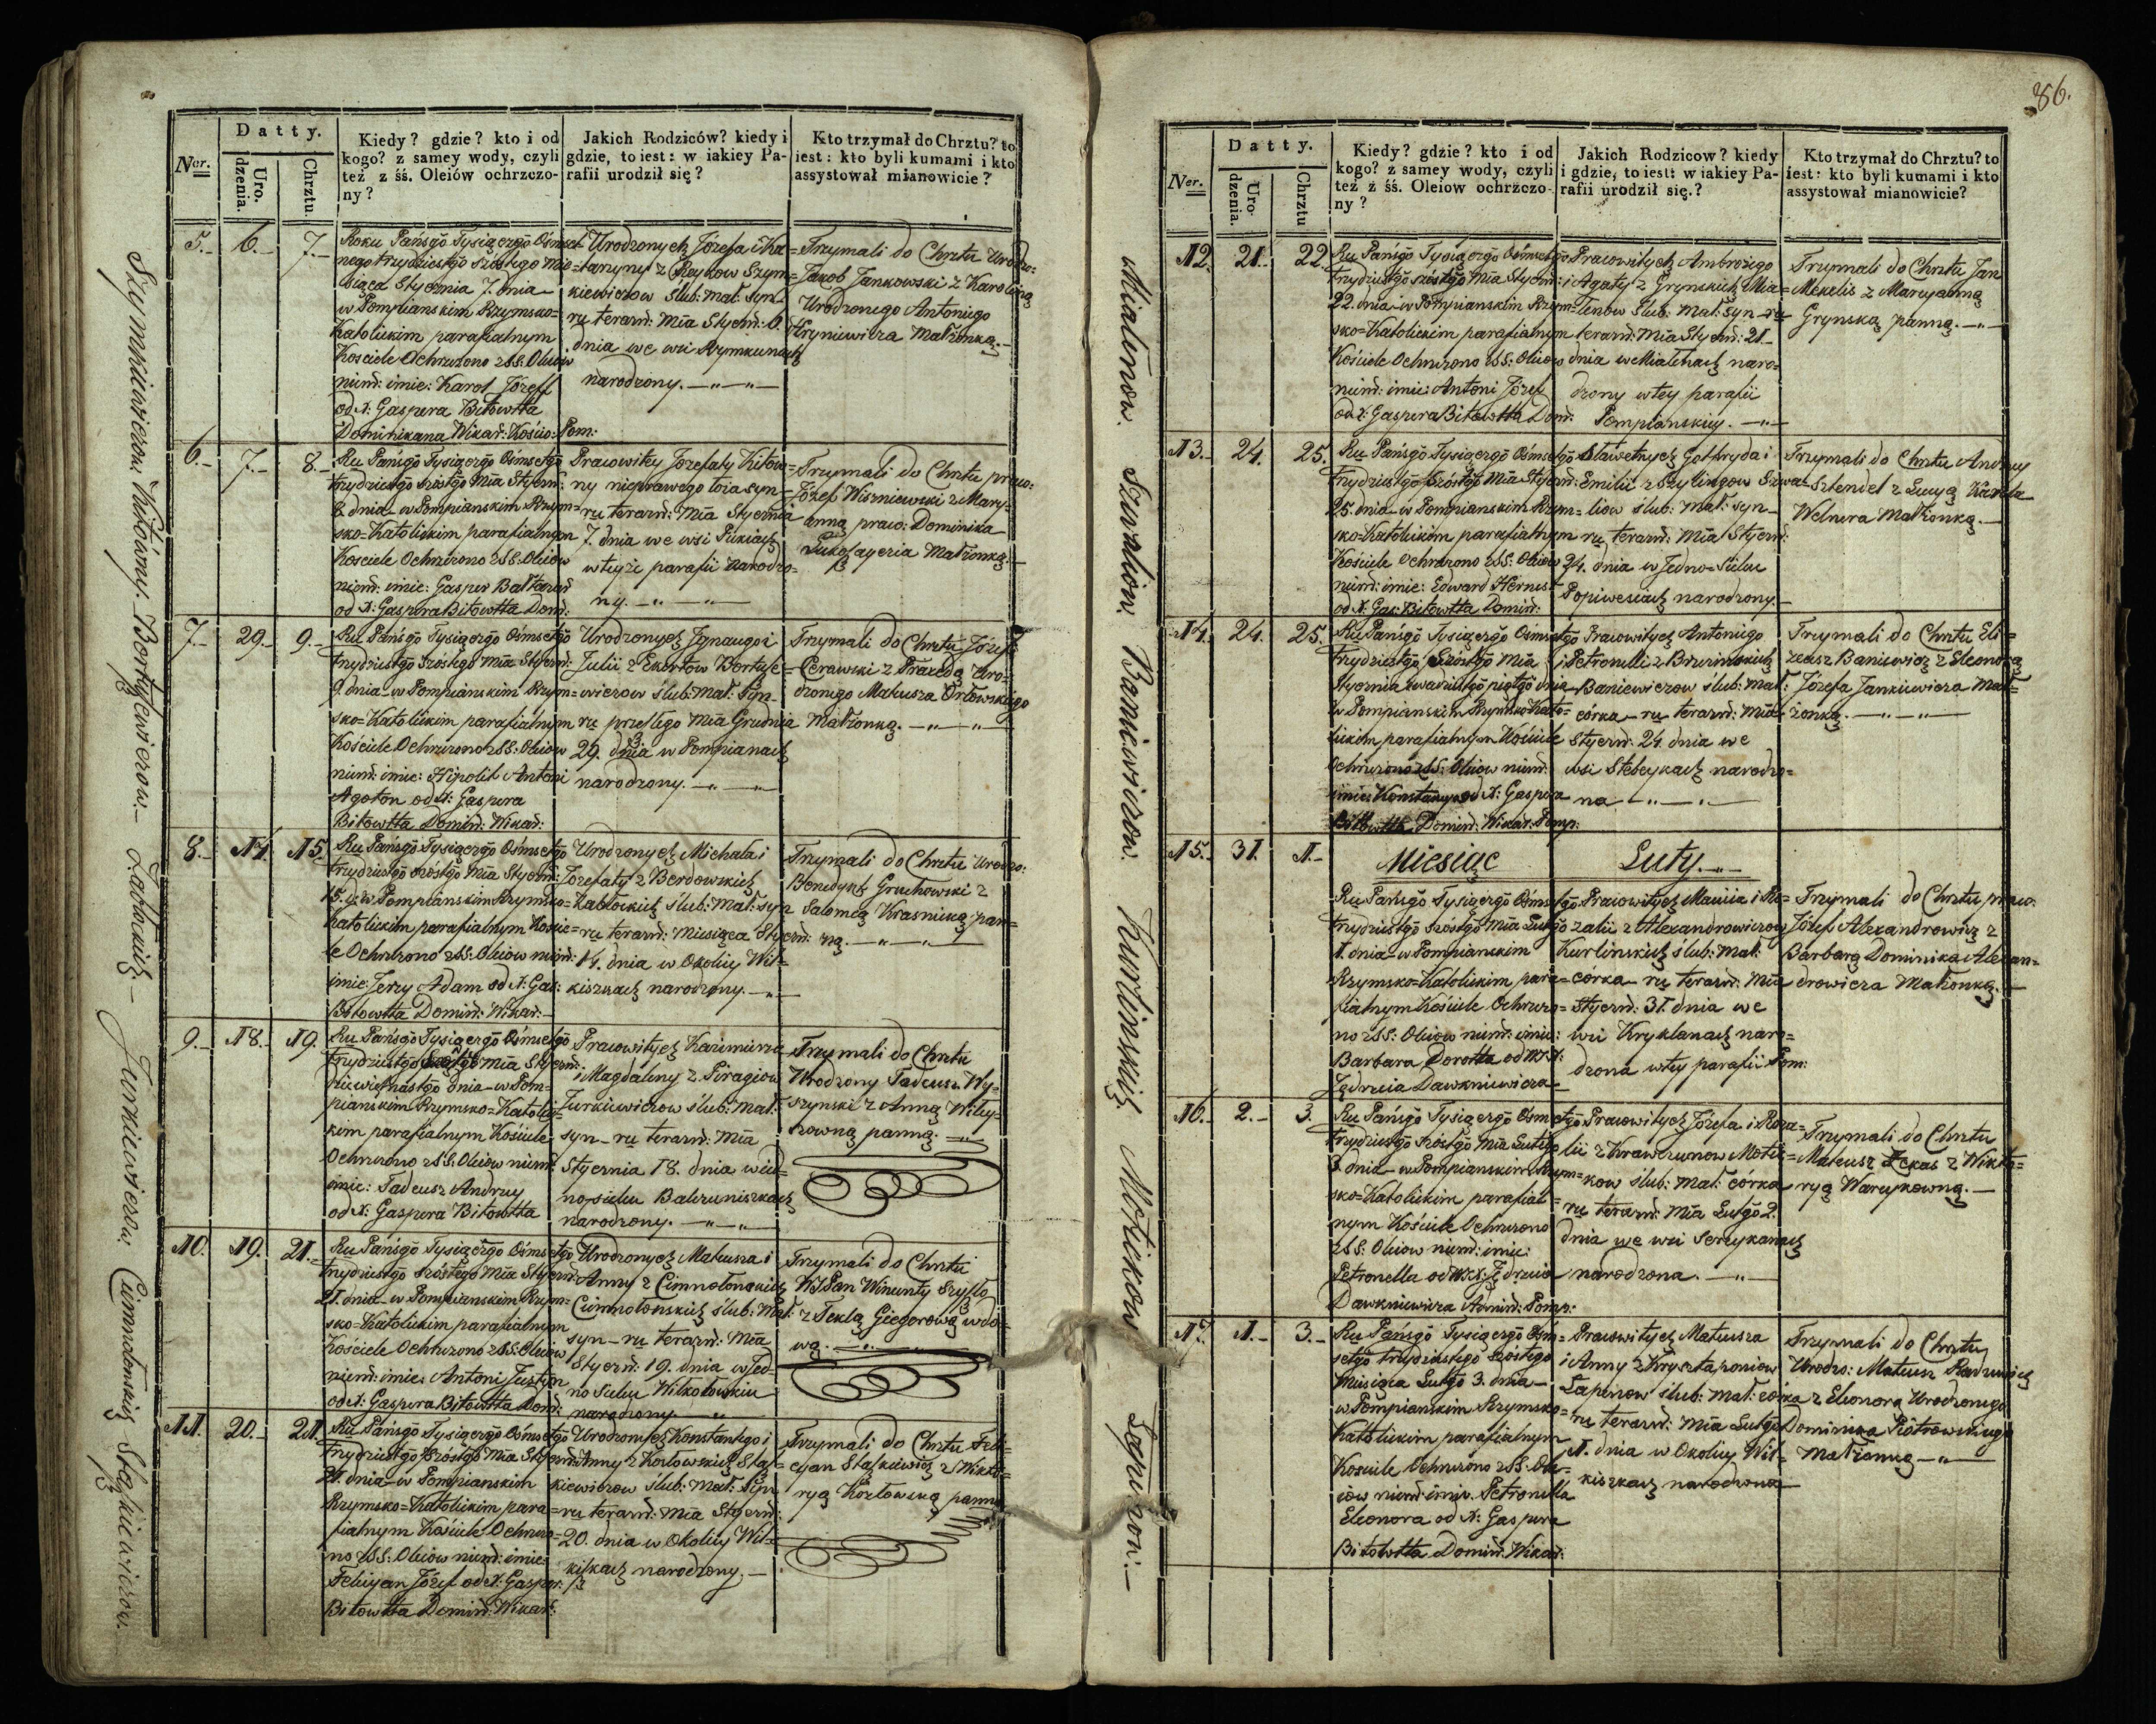 86.
Datty.
Ner.
Uro-
dzenia.
Chrztu
Kiedy? gdzie? kto i od
kogo? z samey wody, czyli
też z śś. Oleiów ochrzczo-
ny?
Jakich Rodziców? kiedy i
gdzie, to iest: w iakiey Pa-
rafii urodził się?
Kto trzymał do Chrztu? to
iest: kto byli kumami i kto
assystował mianowicie?
Szymkiewiczow. Kitówny. Bortkiewiczow.
5.- 6.- 7.-
Roku Pańsgo Tysiączgo Ośmset-
nego trzydziestgo szostego Mie-
siąca Stycznia 7. dnia
w Pompianskim Rzymsko=
Katolickim parafialnym
Kosciele Ochrzczono z SS. Oleiow
niem: imie: Karol Józeff
od X: Gaspera Bitowtta
Dominikana Wikar: Kościo: Pom:
Urodzonych Józefa i Ka=
tarzyny z Reykow Szym=
kiewiczow ślub: mał: syn
ru terazn: Mia Styczn: 6.
dnia we wsi Rymkunach
narodzony.
Trzymali do Chrztu Urodzo:
Jakob Jankowski z Karoliną
Urodzonego Antoniego
Hryniewicza Małżonką.
6.- 7.- 8.-
Ru Pańsgo Tysiączgo Ośmsetgo
trzydziestgo szostgo Mia Styczn:
8 dnia w Pompianskim Rzym=
sko=Katolickim parafialnym
Kosciele Ochrzczono z SS. Oleiow
niem: imie: Gasper Baltazar
od X: Gaspera Bitowtta Dom:
Pracowitey Jozefaty Kitow=
ny nieprawego łoia syn
ru terazn: Mia Stycznia
7. dnia we wsi Pikiach
w teyże parafii narodzo=
ny.
Trzymali do Chrztu praco:
Józef Wiszniewski z Mary=
anną praco: Dominika
Małżonką.
7. 29.- 9.-
Ru Pańsgo Tysiączgo Ośmsetgo
trzydziestgo szóstego Mia Styczn:
9 dnia w Pompianskim Rzym=
sko=Katolickim parafialnym
Kościele Ochrzczono z SS: Oleiow
niem: imie: Hipolit Antoni
Agaton od X: Gaspera
Bitowtta Domin: Wikar:
Urodzonych Ignacego i
Julii z Ekertow Bortkie=
wiczow ślub: mał: syn
ru przeszłego Mia Grudnia
29. dnia w Pompianach
narodzony.
Trzymali do Chrztu Józef
Cerawski z Praxedą Uro=
dzonego Mateusza Orłowskiego
Małżonką.
8.- 14. 15.
Ru Pańsgo Tysiączgo Ośmsetgo
trzydziestgo szóstgo Mia Styczn:
15. d: w Pompianskim Rzymsko=
Katolickim parafialnym Koscie=
le Ochrzczono z SS: Oleiow niem:
imie: Jerzy Adam od X: Gas:
Bitowtta Domin: Wikar:
Urodzonych Michała i
Jozefaty z Berdowskich
Zabłockich ślub: Mał: syn
ru terazn: Miesiąca Styczn:
14. dnia w Okolicy Wil=
kiszkach narodzony.
Trzymali do Chrztu Urodzo:
Benedykt Gruchowski z
Salomeą Krasnicką pan=
ną.
9.- 18.- 19.
Ru Pańsgo Tysiączgo Ośmsetgo
trzydziestgo szostgo Mia Styczn:
dziewietnastgo dnia w Pom=
pianskim Rzymsko=Katolic=
kim parafialnym Kościele
Ochrzczono z SS. Oleiow niem:
imie: Tadeusz Andrzey
od X: Gaspera Bitowtta
Pracowitych Kazimierza
i Magdaleny z Piragiow
Jurkiewiczow ślub: mał:
syn ru terazn: Mia
Stycznia 18. dnia w Jed=
nosielu Balczuniszkach
narodzony.
Trzymali do Chrztu
Urodzony Tadeusz Wy=
szynski z Anną Wity=
zowną panną.
10. 19. 21.
Ru Pańsgo Tysiączgo Ośmsetgo
trzydziestgo szóstego Mia Styczn:
21. dnia w Pompianskim Rzym=
sko=Katolickim parafialnym
Kościele Ochrzczono z SS: Oleiow
niem: imie: Antoni Justyn
od X: Gaspera Bitowtta Dom:
Urodzonych Mateusza i
Anny z Cimnołonskich
Cimnołonskich ślub: Mał:
syn ru terazn: Mia
Styczn: 19. dnia w Jed=
no sielu Witkołowkiu
narodzony.
Trzymali do Chrztu
WJPan Wincenty Szyłło
z Teklą Giegorową wdo=
wą.
11. 20. 21.
Ru Pańsgo Tysiączgo Ośmsetgo
trzydziestgo szóstgo Mia Styczn:
21. dnia w Pompianskim
Rzymsko=Katolickim para=
fialnym Kościele Ochrzczo=
no z SS. Oleiow niem: imie:
Felicyan Józef od X: Gasper:
Bitowtta Domin: Wikar:
Urodzonych Konstantego i
Anny z Kozłowskich Staś=
kiewiczow ślub: Mał: syn
ru terazn: Mia Styczn:
20. dnia w Okolicy Wil=
kiszkach narodzony.
Trzymali do Chrztu Feli=
cyan Staśkiewicz z Wikto=
ryą Kozłowską panną
Zabłockich. Jurkiewiczow. Cimnołonskich. Staśkiewiczow.
Datty.
Ner.
Uro-
dzenia.
Chrztu
Kiedy? gdzie? kto i od
kogo? z samey wody, czyli
też z śś. Oleiow ochrzczo-
ny?
Jakich Rodzicow? kiedy
i gdzie, to iest: w iakiey Pa-
rafii urodził się.?
Kto trzymał do Chrztu? to
iest: kto byli kumami i kto
assystował mianowicie?
Mialenow. Szwaliow. Baniewiczow. Kurlinskich. Motiekow. Łapenow.
12. 21. 22.
Ru Pańsgo Tysiączgo Ośmsetgo
trzydziestgo szóstgo Mia Styczn:
22. dnia w Pompianskim Rzym=
sko=Katolickim parafialnym
Kościele Ochrzczono z SS: Oleiow
niem: imie: Antoni Józef
od X: Gaspera Bitowtta Dom:
Pracowitych Ambrożego
i Agaty z Grynskich Mia=
lenow ślub: Mał: syn ru
terazn: Mia Styczn: 21
dnia we Mialenach naro=
dzony w tey parafii
Pompianskiey.
Trzymali do Chrztu Jan
Mekelis z Maryanną
Grynską panną.
13. 24. 25.
Ru Pańsgo Tysiączgo Ośmsetgo
trzydziestgo szóstgo Mia Styczn:
25. dnia w Pompianskim Rzym=
sko=Katolickim parafialnym
Kościele Ochrzczono z SS: Oleiow
niem: imie: Edward Hernest
od X: Gas: Bitowtta Domin:
Sławetnych Gotfryda i
Emilii z Szylingow Szwa=
liow ślub: mał: syn
ru terazn: Mia Styczn:
24. dnia w Jedno=Sielu
Popiwesiach narodzony.
Trzymali do Chrztu Andrzey
Sztendel z Lucyą Karola
Welnera Małżonką.
14. 24. 25.
Ru Pańsgo Tysiączgo Ośmsetgo
trzydziestgo szóstgo Mia
Stycznia dwudziestgo piątgo dnia
w Pompianskim Rzymsko Kato=
lickim parafialnym Kościele
Ochrzczono z SS: Oleiow niem:
imie: Konstancya od X: Gaspera
Bitowtta Domin: Wikar: Pomp:
Pracowitych Antoniego
i Petronelli z Brzezinskich
Baniewiczow ślub: mał:
córka ru terazn: Mia
Styczn: 24. dnia we
wsi Stebeykach narodzo=
na
Trzymali do Chrztu Eli=
zeasz Baniewicz z Eleonorą
Józefa Jankiewicza Mał=
żonką.
15. 31. 1.-
Miesiąc Luty.
Ru Pańsgo Tysiączgo Ośmsetgo
trzydziestgo szóstgo Mia Lutgo
1. dnia w Pompianskim
Rzymsko=Katolickim para=
fialnym Kościele Ochrzczo=
no z SS: Oleiow niem: imie:
Barbara Dorotta od WX:
Jędrzeia Dawkniewicza
Pracowitych Macieia i Ro=
zalii z Alexandrowiczow
Kurlinskich ślub: Mał:
córka ru terazn: Mia
Styczn: 31. dnia we
wsi Kryklanach naro=
dzona w tey parafii Pom:
Trzymali do Chrztu praco:
Józef Alexandrowicz z
Barbarą Dominika Alexan=
drowicza Małżonką.
16. 2.- 3.
Ru Pańsgo Tysiączgo Ośmsetgo
trzydziestgo szóstgo Mia Lutego
3. dnia w Pompianskim Rzym=
sko=Katolickim parafial=
nym Kościele Ochrzczono
z SS: Oleiow niem: imie:
Petronella od WX: Jędrzeia
Dawkniewicza Admin: Pomp:
Pracowitych Józefa i Roza=
lii z Krawczunow Motie=
kow ślub: Mał: córka
ru terazn: Mia Lutgo 2.
dnia we wsi Serzykanach
narodzona.
Trzymali do Chrztu
Mateusz Lekas z Wikto=
ryą Warcykowną.
17. 1.- 3.-
Ru Pańsgo Tysiączgo Ośm=
setgo trzydziestego szóstego
Miesiąca Lutgo 3. dnia
w Pompianskim Rzymsko=
Katolickim parafialnym
Kościele Ochrzczono z SS: Ole=
iow niem: imie: Petronella
Eleonora od X: Gaspera
Bitowtta Domin: Wikar:
Pracowitych Mateusza
i Anny z Krysztaponiow
Łapenow ślub: mał: córka
ru terazn: Mia Lutgo
1. dnia w Okolicy Wil=
kiszkach narodzona
Trzymali do Chrztu
Urodzo: Mateusz Radziewicz
z Eleonorą Urodzonego
Dominika Piotrowskiego
Małżonką